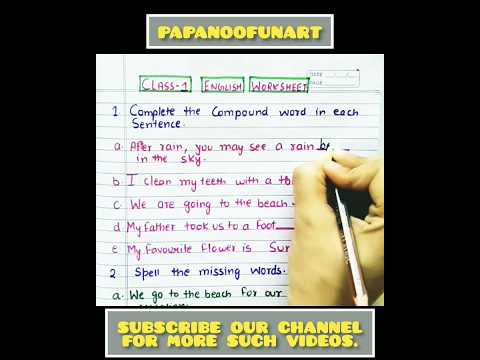 PAPANOOFUNART
CLASS-1 ENGLISH WORKSHEET
DATE
PAGE
1. Complete the Compound word in each
Sentence.
a. After rain, you may see a rain
in the sky.
b. I clean my teeth with a
c. We are going to the beach
d. My father took us to a Foot
e. My favourite flower is Sun
2. Spell the missing words.
a. We go to the beach for our
SUBSCRIBE OUR CHANNEL
FOR MORE SUCH VIDEOS.